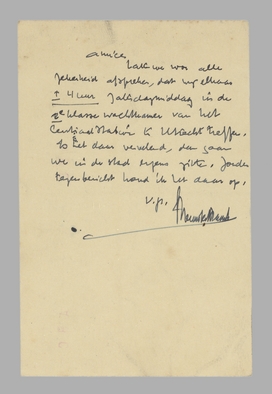 amice,
Laten we voor alle
zekerheid afspreken, dat wij elkaar
± 4 uur Zaterdagmiddag in de
2e klasse wachtkamer van het
Centraal Station te Utrecht treffen.
Is het daar vervelend, dan gaan
we in de stad ergens zitten. Zonder
tegenbericht houd ik het daar op.